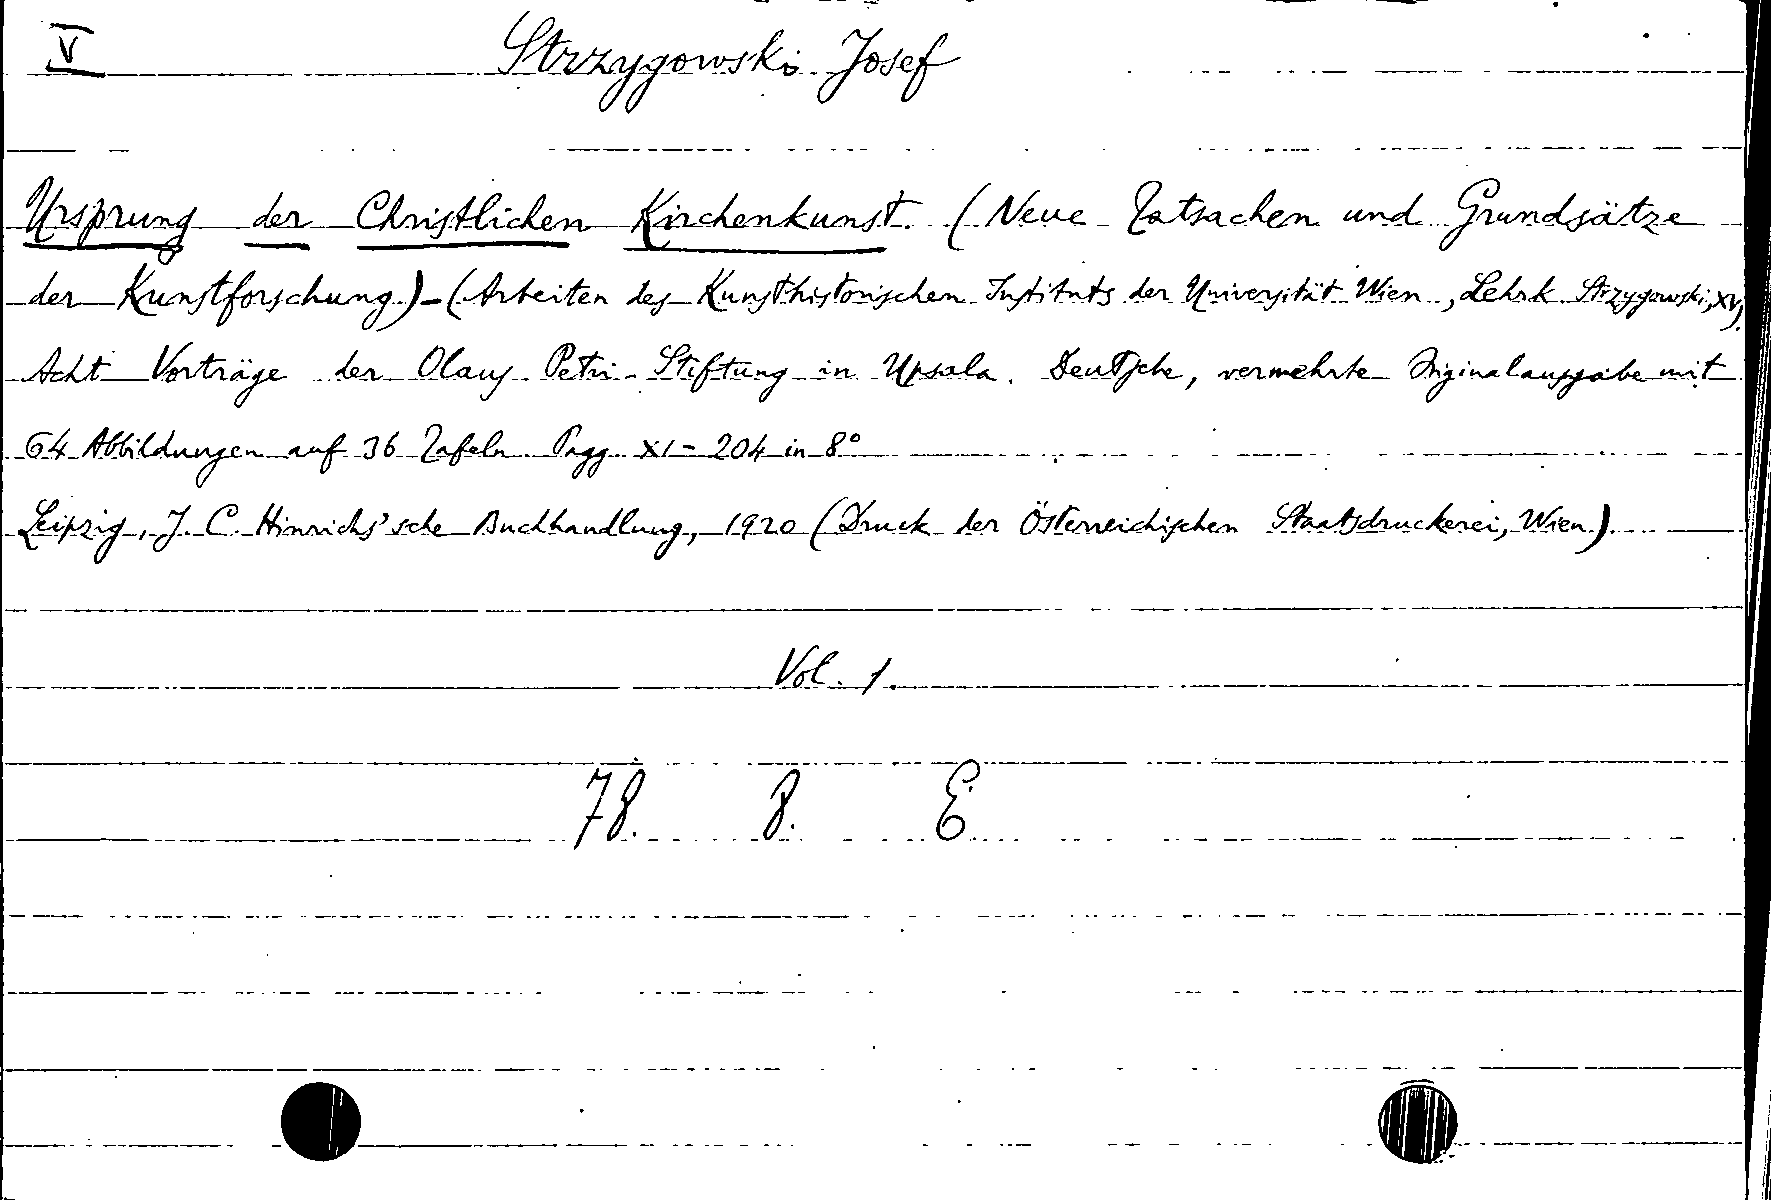 V
Strzygowski Josef
Ursprung der Christlichen Kirchenkunst. (Neue Tatsachen und Grundsätze
der Kunstforschung.) - (Arbeiten des Kunsthistorischen Instituts der Universität Wien, Lehrk. Strzygowski, XV).
Acht Vorträge der Olaus Petri - Stiftung in Upsala. Deutsche, vermehrte Originalausgabe mit
64 Abbildungen auf 36 Tafeln. Pagg. XI - 204 in 8°
Leipzig, J. C. Hinrichs'sche Buchhandlung, 1920 (Druck der Österreichischen Staatsdruckerei, Wien).
Vol. 1.
78. 8. E